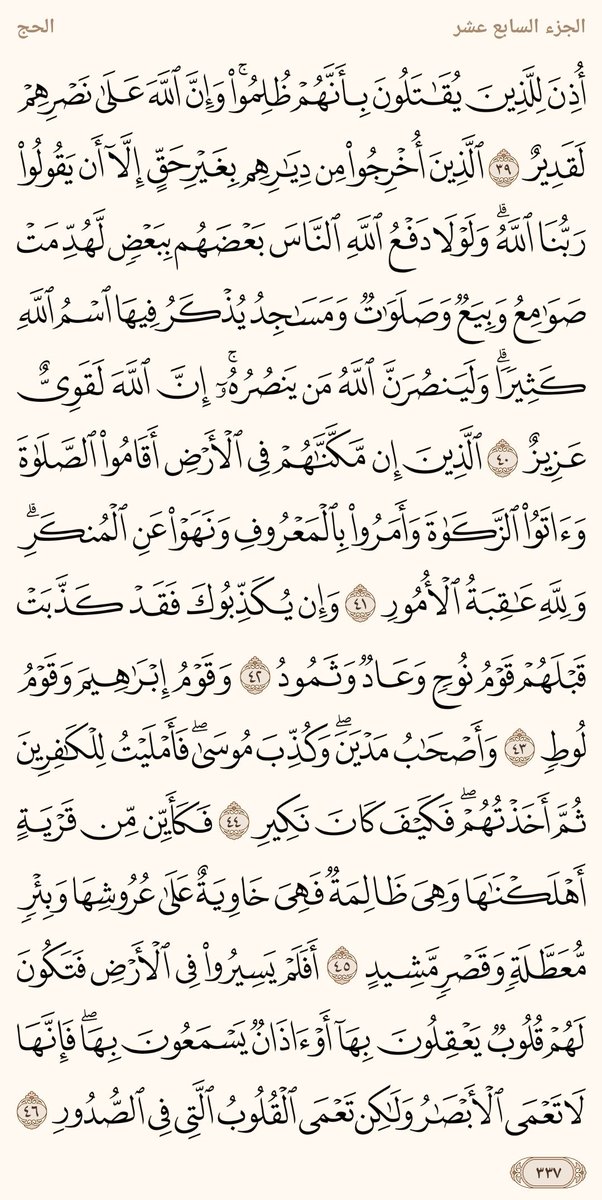 الجزء السابع عشر
الحج
أُذِنَ لِلَّذِينَ يُقَٰتَلُونَ بِأَنَّهُمۡ ظُلِمُواْۚ وَإِنَّ ٱللَّهَ عَلَىٰ نَصۡرِهِمۡ
لَقَدِيرٌ ٣٩ ٱلَّذِينَ أُخۡرِجُواْ مِن دِيَٰرِهِم بِغَيۡرِ حَقٍّ إِلَّآ أَن يَقُولُواْ
رَبُّنَا ٱللَّهُۗ وَلَوۡلَا دَفۡعُ ٱللَّهِ ٱلنَّاسَ بَعۡضَهُم بِبَعۡضٖ لَّهُدِّمَتۡ
صَوَٰمِعُ وَبِيَعٞ وَصَلَوَٰتٞ وَمَسَٰجِدُ يُذۡكَرُ فِيهَا ٱسۡمُ ٱللَّهِ
كَثِيرٗاۗ وَلَيَنصُرَنَّ ٱللَّهُ مَن يَنصُرُهُۥٓۚ إِنَّ ٱللَّهَ لَقَوِيٌّ
عَزِيزٌ ٤٠ ٱلَّذِينَ إِن مَّكَّنَّٰهُمۡ فِي ٱلۡأَرۡضِ أَقَامُواْ ٱلصَّلَوٰةَ
وَءَاتَوُاْ ٱلزَّكَوٰةَ وَأَمَرُواْ بِٱلۡمَعۡرُوفِ وَنَهَوۡاْ عَنِ ٱلۡمُنكَرِۗ
وَلِلَّهِ عَٰقِبَةُ ٱلۡأُمُورِ ٤١ وَإِن يُكَذِّبُوكَ فَقَدۡ كَذَّبَتۡ
قَبۡلَهُمۡ قَوۡمُ نُوحٖ وَعَادٞ وَثَمُودُ ٤٢ وَقَوۡمُ إِبۡرَٰهِيمَ وَقَوۡمُ
لُوطٖ ٤٣ وَأَصۡحَٰبُ مَدۡيَنَۖ وَكُذِّبَ مُوسَىٰۖ فَأَمۡلَيۡتُ لِلۡكَٰفِرِينَ
ثُمَّ أَخَذۡتُهُمۡۖ فَكَيۡفَ كَانَ نَكِيرِ ٤٤ فَكَأَيِّن مِّن قَرۡيَةٍ
أَهۡلَكۡنَٰهَا وَهِيَ ظَالِمَةٞ فَهِيَ خَاوِيَةٌ عَلَىٰ عُرُوشِهَا وَبِئۡرٖ
مُّعَطَّلَةٖ وَقَصۡرٖ مَّشِيدٍ ٤٥ أَفَلَمۡ يَسِيرُواْ فِي ٱلۡأَرۡضِ فَتَكُونَ
لَهُمۡ قُلُوبٞ يَعۡقِلُونَ بِهَآ أَوۡ ءَاذَانٞ يَسۡمَعُونَ بِهَاۖ فَإِنَّهَا
لَا تَعۡمَى ٱلۡأَبۡصَٰرُ وَلَٰكِن تَعۡمَى ٱلۡقُلُوبُ ٱلَّتِي فِي ٱلصُّدُورِ ٤٦
٣٣٧